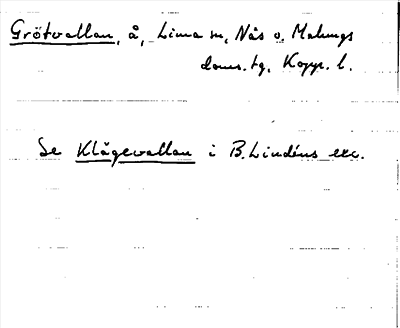 Grötvallan, å, Lima sn, Nås o. Malungs
doms. tg, Kopp. l.
Se Klågevallan i B. Lindéns exc.